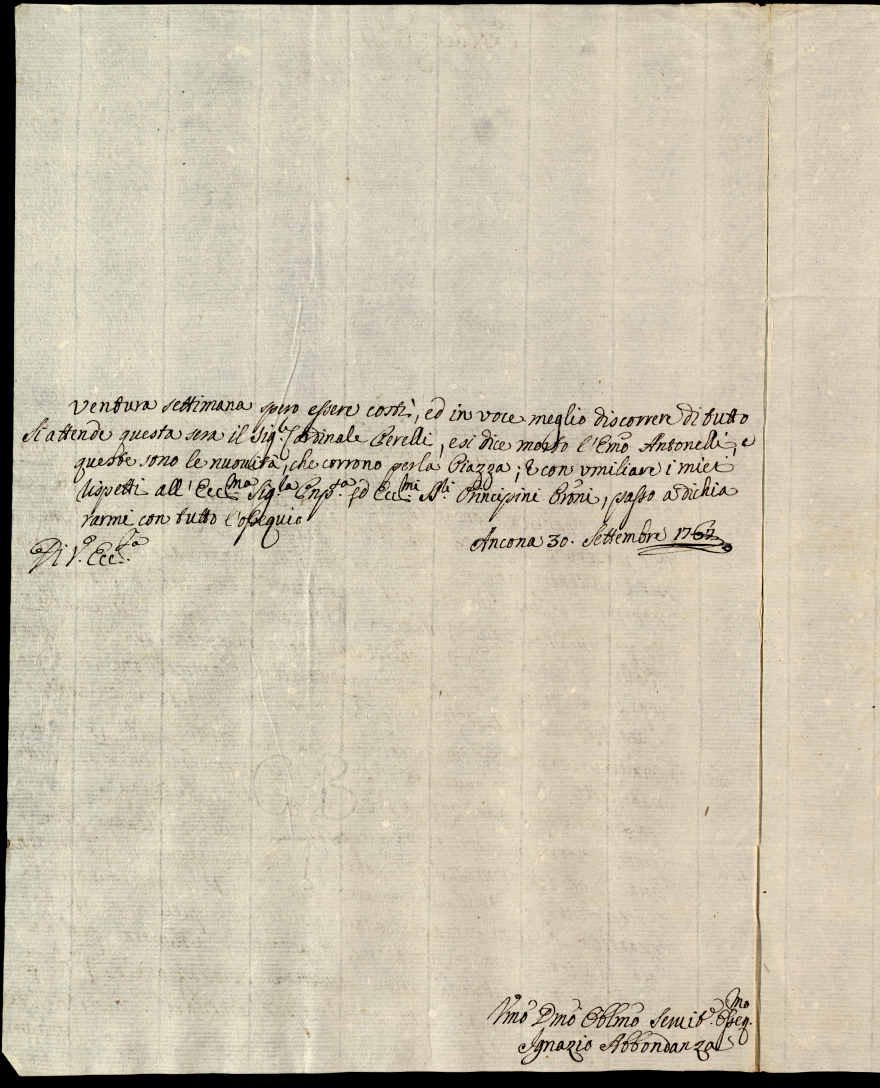 ventura settimana spero essere costì, ed in voce meglio discorrere di tutto
Si attende questa sera il Sig.r Cardinale Perelli, e si dice morto l'Emo Antonelli, e
queste sono le nuouità, che corrono per la Piazza; E con vmiliare i miei
rispetti all'Ecc.ma Sig.ra Cnp.ta ed Ecc.mi Sli Principini Proni, passo a dichia
rarmi con tutto l'ossequio
Di V.a Ecc.za
Ancona 30. Settembre 1767
Vmo Dmo Oblmo Seruit.e Osseq.mo
Ignazio Abbondanza